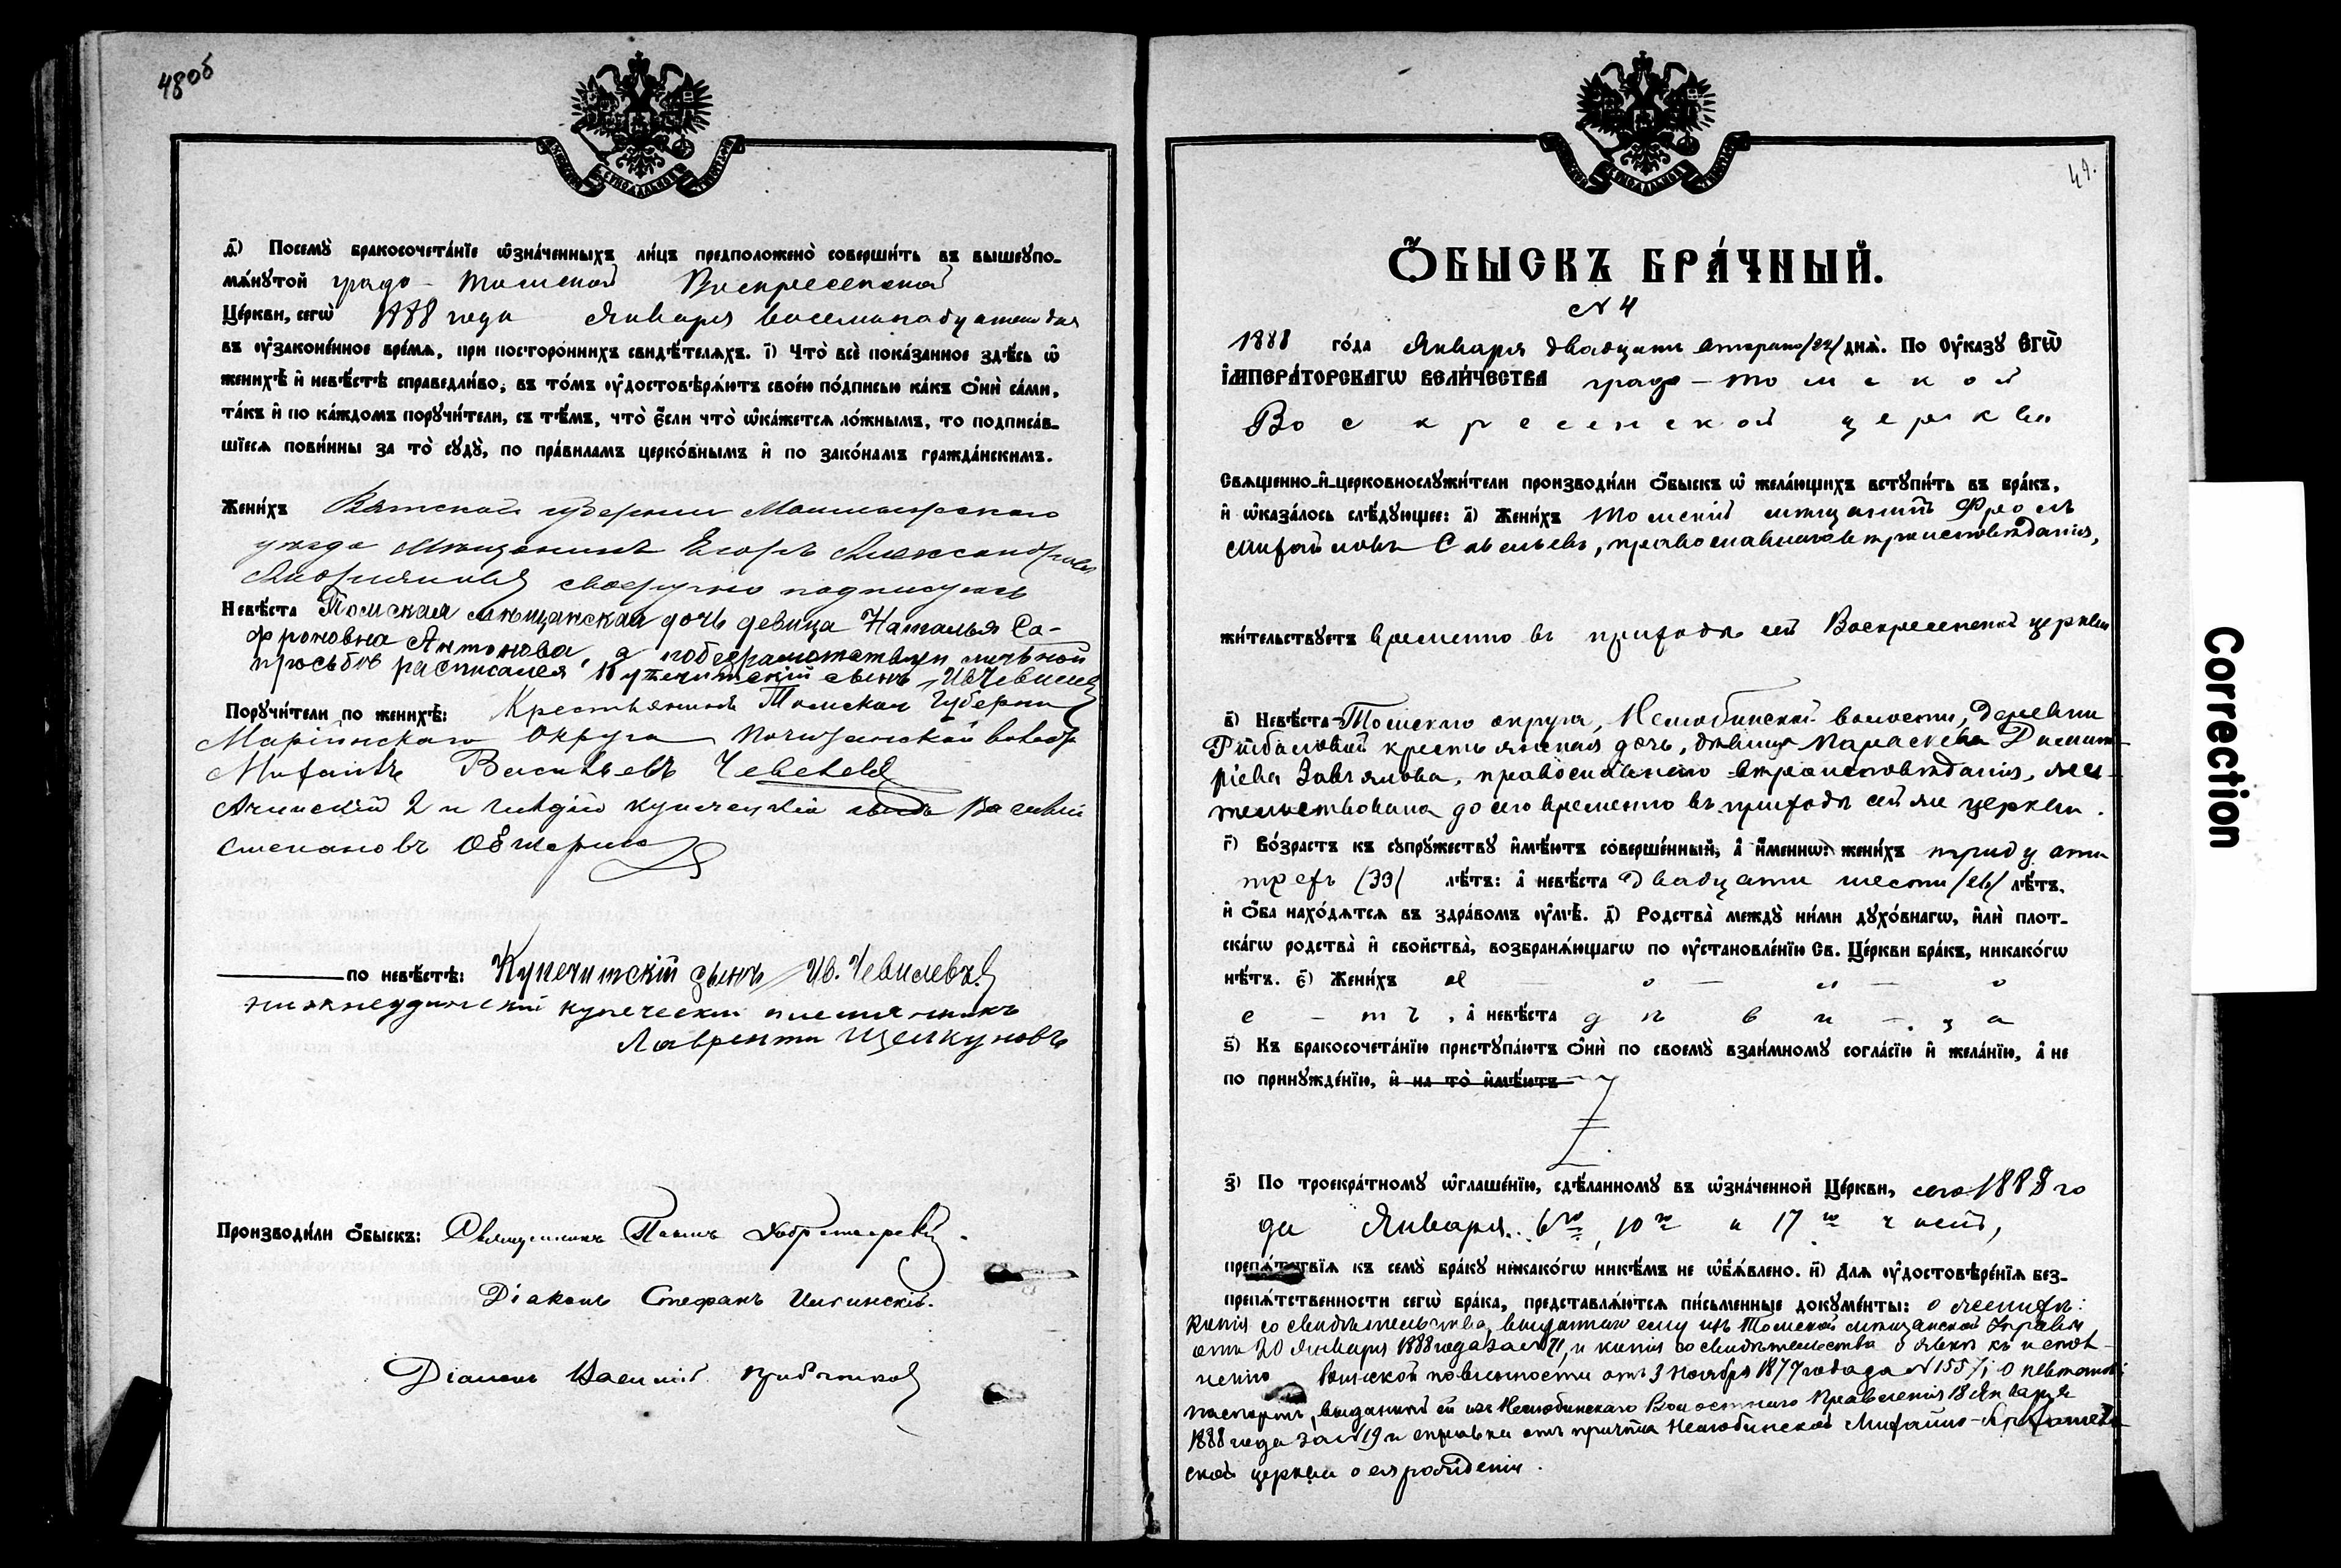 48об
д҃) Посемꙋ̀ бракосочета́нїе ѡ҆зна́ченныхъ ли́цъ предположено̀ соверши́ть въ вышеꙋпо-
мѧ́нꙋтой градо-Томской Воскресенской
Це́ркви, сегѡ̀ 1888 года Января восемнадцатаго дня
въ ᲂу҆зако́ненное вре́мѧ, при посторо́ннихъ свидѣ́телѧхъ. і҃) Что̀ всѐ пока́занное здѣ́сь ѡ҆
женихѣ̀ и҆ невѣ́стѣ справедли́во, въ то́мъ ᲂу҆достовѣрѧ́ютъ свое́ю по́дписью ка́къ ѻ҆нѝ са́ми,
та́къ и҆ по ка́ждомъ порꙋчи́тели, съ тѣ́мъ, что̀ є҆́сли что̀ ѡ҆ка́жетсѧ ло́жнымъ, то подписа́в-
шїесѧ пови́нны за то̀ сꙋдꙋ̀, по пра́виламъ церко́внымъ и҆ по зако́намъ гражда́нскимъ.
Жени́хъ Вятской губернии
уезда мещанинъ Егоръ Александровъ
своеручно подписуюсь
Невѣ́ста Томская мѣщанская дочь девица Наталья Со-
фроновна Антонова, а по безграмотству личной
просьбѣ расписался Купеческій сынъ Ив Чевилевъ
Порꙋчи́тели по женихѣ̀: Крестьянинъ Томской Губерни
Маріинскаго Округа Почитанской волости
Михаилъ Васильевъ Чевелевъ
Ачинскій 2й гильдіи купеческій сынъ Василий
Степановъ
по невѣ́стѣ: Купечитскій сынъ Ив. Чевилевъ
нижнеудинскій купечески племянникъ
Лаврентий Щелкуновъ
Производи́ли ѻ҆́быскъ: Священникъ Павелъ Добротворскій.
Діаконъ Стефанъ
Діаконъ Василій Прибытковъ
49.
Ѻ҆́БЫСКЪ БРА́ЧНЫЙ.
N 4
1888 го́да Января двадцать втораго /22/ днѧ̀. По Оу҆ка́зꙋ Є҆ГѠ̀
І҆МПЕРА́ТОРСКАГѠ ВЕЛИ́ЧЕСТВА градо-Томской
Воскресенской церкви
Свѧщенно-и҆-церковнослꙋжи́тели производи́ли ѻ҆́быскъ ѡ҆ жела́ющихъ встꙋпи́ть въ бра́къ,
и҆ ѡ҆каза́лось слѣ́дꙋющее: а҃) Жени́хъ Томскій мѣщанинъ Фролъ
Михайловъ Савельевъ, православнаго вѣроисповѣданія,
жи́тельствꙋетъ временно въ приходѣ сей Воскресенской церкви
в҃) Невѣ́ста Томскаго округа, Нелюбинской волости, деревни
Рыбаловой крестьянская дочь, дѣвица Параскева Димит-
ріева Завьялова, православнаго вѣроисповѣданія, жи-
тельствовала до сего временно въ приходѣ сей же церкви.
г҃) Во́зрастъ къ сꙋпрꙋ́жествꙋ и҆мѣ́ютъ соверше́нный, а҆ и҆́менно: жени́хъ тридцати
трехъ /33/ лѣ́тъ: а҆ невѣ́ста двадцати шести /26/ лѣ́тъ,
и҆ ѻ҆́ба нахо́дѧтсѧ въ здра́вомъ ᲂу҆мѣ̀. д҃) Родства̀ междꙋ̀ ни́ми дꙋхо́внагѡ, и҆лѝ плот-
ска́гѡ родства̀ и҆ свойства̀, возбранѧ́ющагѡ по ᲂу҆становле́нїю Св. Це́ркви бра́къ, никако́гѡ
нѣ́тъ. є҃) Жени́хъ холо-
стъ, а҆ невѣ́ста дѣвица
ѕ҃) Къ бракосочета́нїю пристꙋпа́ютъ ѻ҆нѝ по своемꙋ̀ взаи́мномꙋ согла́сїю и҆ жела́нїю, а҆ не
по принꙋжде́нїю, и҆ на то̀ и҆мѣ́ютъ
з҃) По троекра́тномꙋ ѡ҆глаше́нїю, сдѣ́ланномꙋ въ ѡ҆зна́ченной Це́ркви, сего 1888 го
да Января 6го, 10го и 17го чиселъ,
препѧ́тствїѧ къ семꙋ̀ бра́кꙋ никако́гѡ никѣ́мъ не ѡ҆б̾ѧ́влено. и҃) Длѧ ᲂу҆достовѣре́нїѧ без-
препѧ́тственности сегѡ̀ бра́ка, представлѧ́ютсѧ пи́сьменные докꙋме́нты: о женихѣ:
копія со свидѣтельства, выданнаго ему изъ Томской мѣщанской Управы
отъ 20 Января 1888 года за N 71, и копія со свидѣтельства о явкѣ къ исполн-
ненію воинской повинности отъ 3 Ноября 1877 года за N 1557; о невѣстѣ:
паспортъ, выданный ей изъ Нелюбинскаго Волостнаго Правленія 18 Января
1888 года за N 19 и справка отъ причта Нелюбинской Михайло-Архангель-
ской церкви о ея рожденіи.
Correction